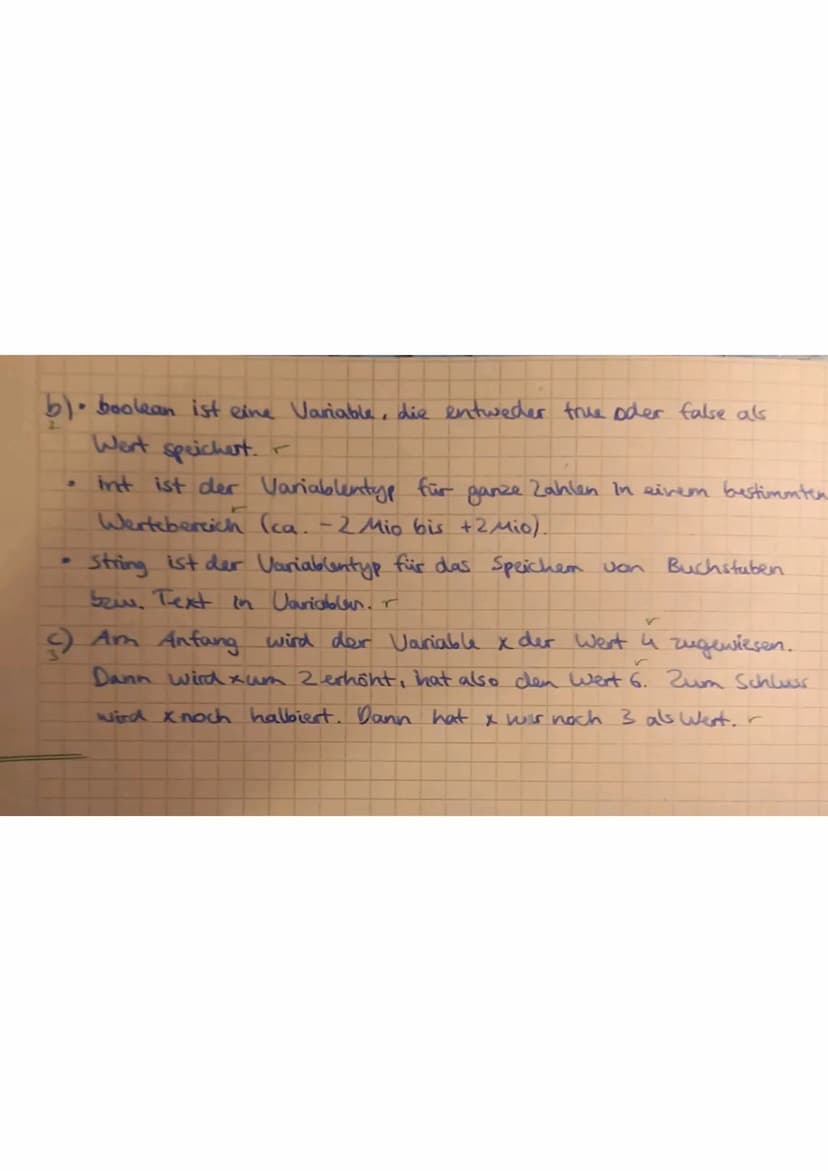 b) • boolean ist eine Variable, die entweder true oder false als
2
Wert speichert.
• int ist der Variablentyp für ganze Zahlen in einem bestimmten
Wertebereich (ca. -2 Mio bis +2 Mio).
• String ist der Variablentyp für das Speichern von Buchstaben
bzw. Text in Variablen.
c) Am Anfang wird der Variable x der Wert 4 zugewiesen.
3
Dann wird x um 2 erhöht, hat also den Wert 6. Zum Schluss
wird x noch halbiert. Dann hat x nur noch 3 als Wert.